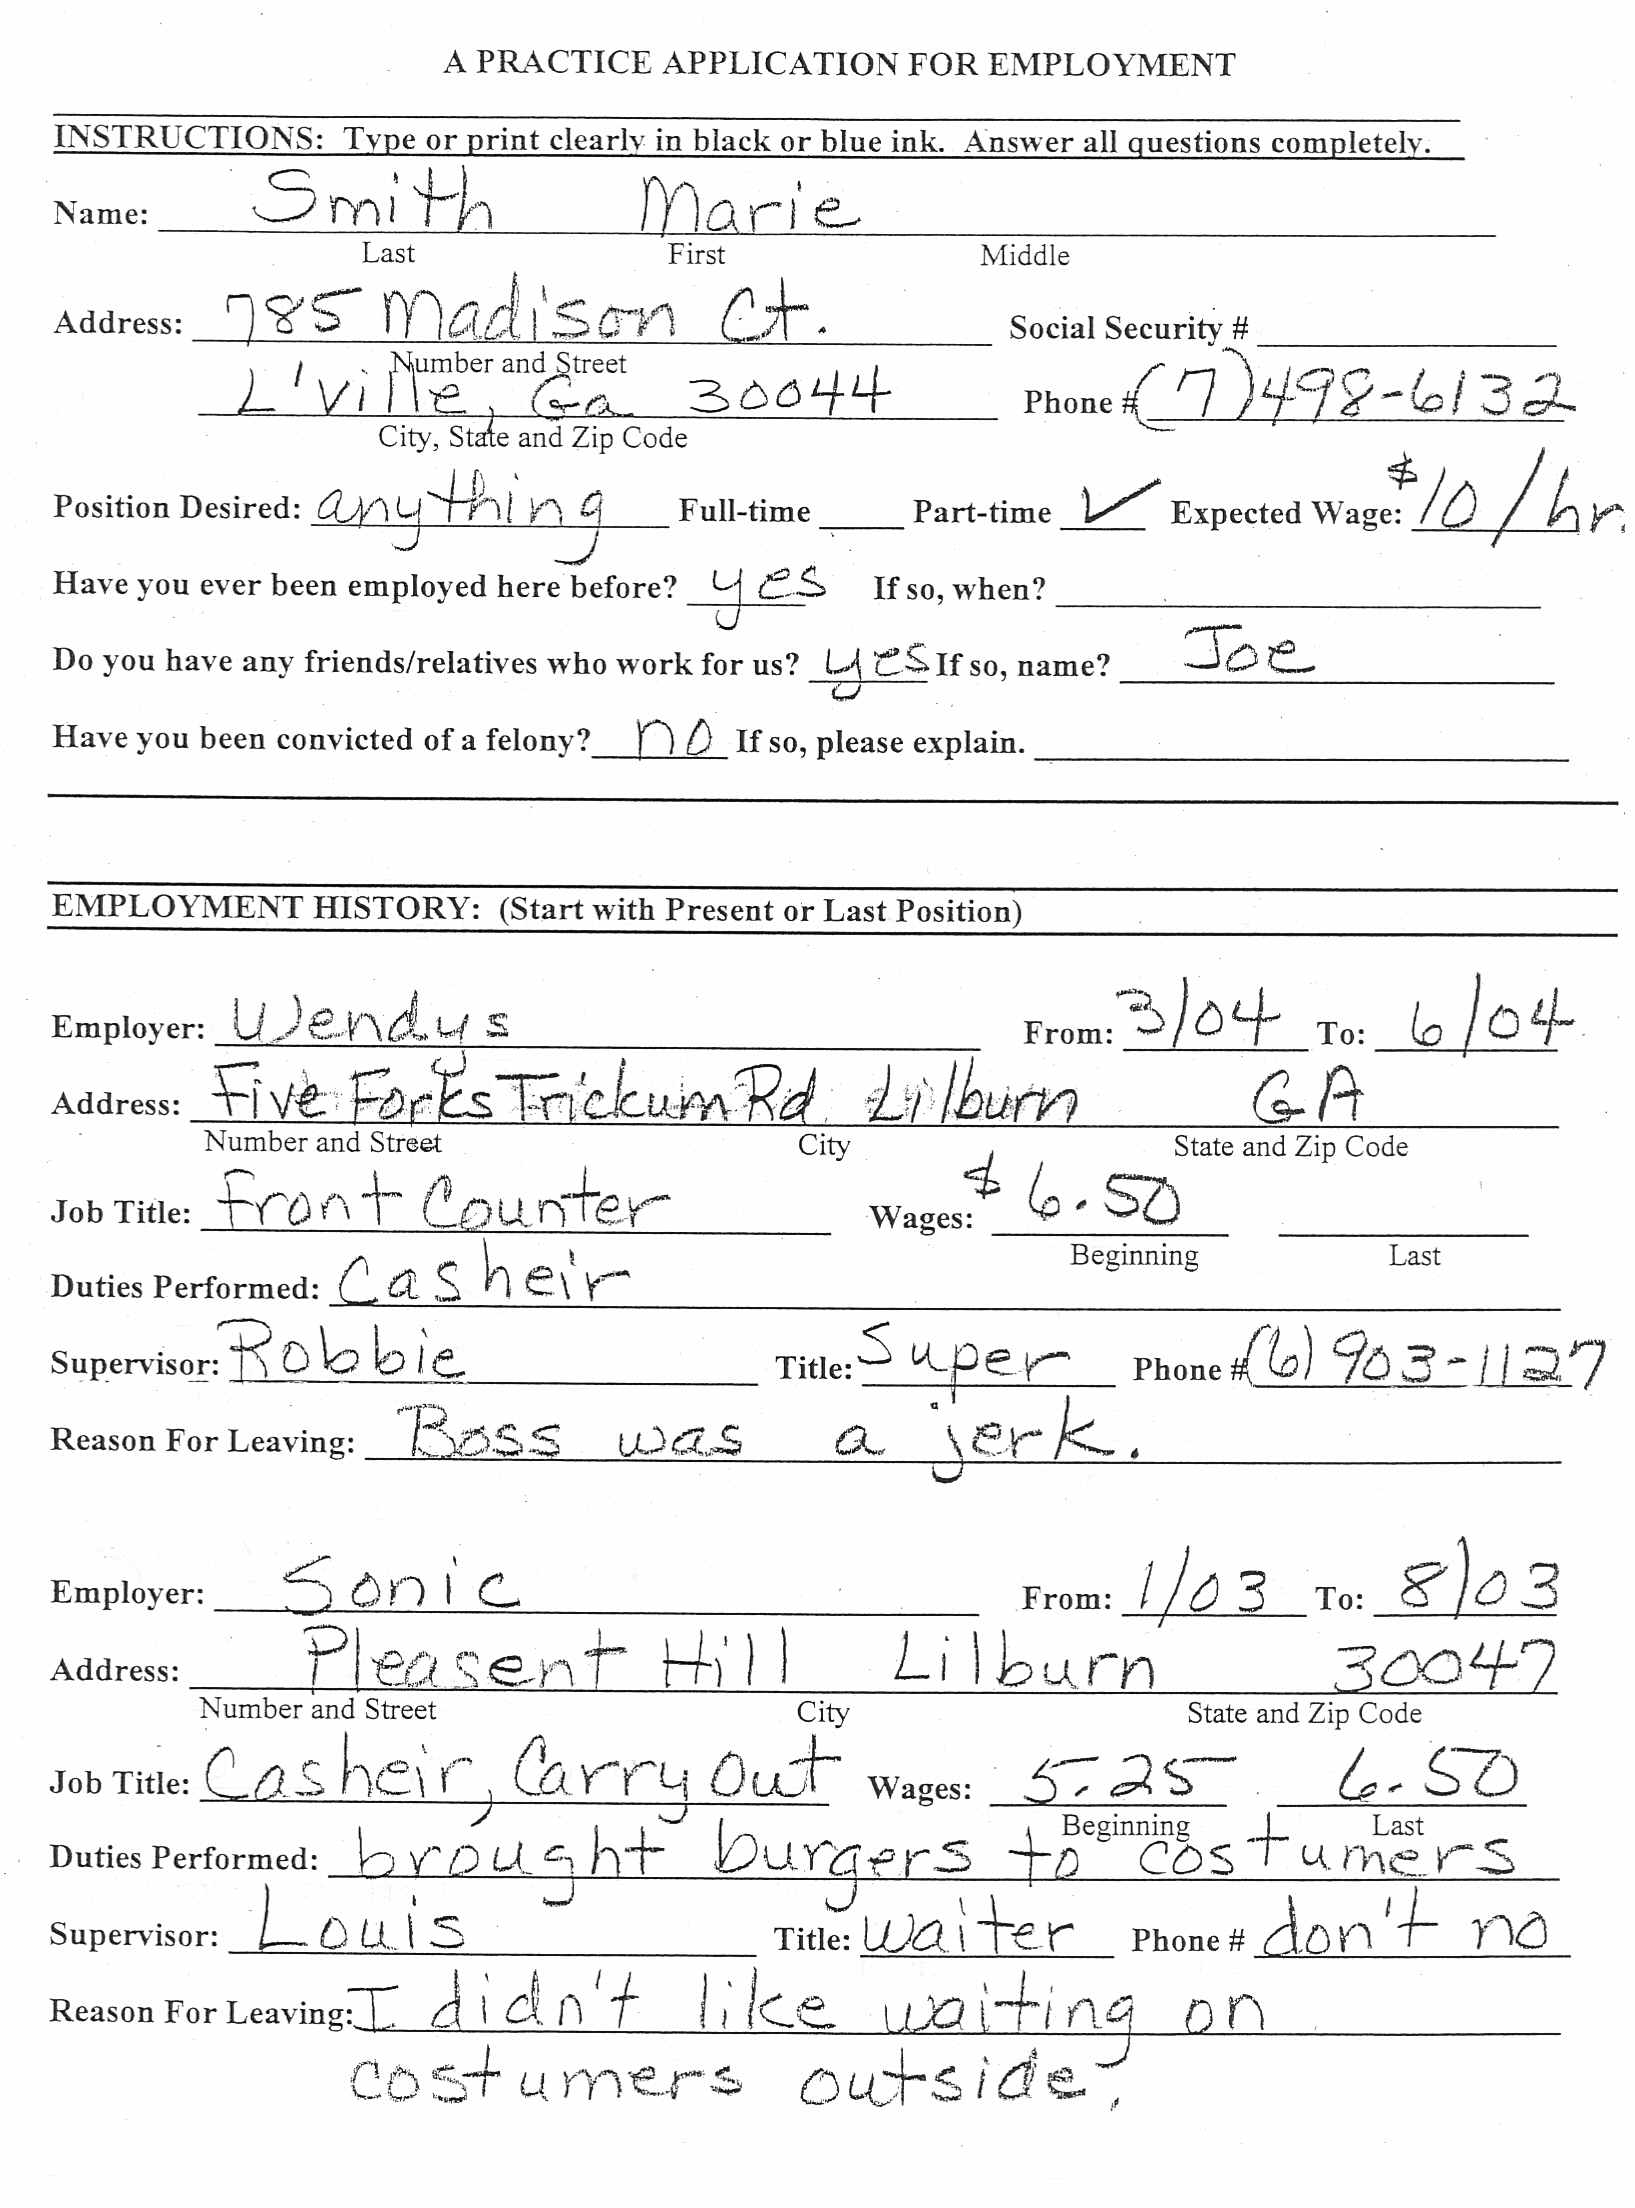 A PRACTICE APPLICATION FOR EMPLOYMENT
INSTRUCTIONS: Type or print clearly in black or blue ink. Answer all questions completely.
Name: Smith Marie
Last First Middle
Address: 785 Madison Ct. Social Security #
Number and Street
L'ville, Ga 30044 Phone # (7)498-6132
City, State and Zip Code
Position Desired: anything Full-time Part-time ✓ Expected Wage: $10/hr.
Have you ever been employed here before? yes If so, when?
Do you have any friends/relatives who work for us? yes If so, name? Joe
Have you been convicted of a felony? no If so, please explain.
EMPLOYMENT HISTORY: (Start with Present or Last Position)
Employer: Wendys From: 3/04 To: 6/04
Address: Five Forks Trickum Rd Lilburn GA
Number and Street City State and Zip Code
Job Title: Front Counter Wages: $6.50
Beginning Last
Duties Performed: Casheir
Supervisor: Robbie Title: Super Phone # (6) 903-1127
Reason For Leaving: Boss was a jerk.
Employer: Sonic From: 1/03 To: 8/03
Address: Pleasent Hill Lilburn 30047
Number and Street City State and Zip Code
Job Title: Casheir, Carry Out Wages: 5.25 6.50
Beginning Last
Duties Performed: brought burgers to costumers
Supervisor: Louis Title: Waiter Phone # don't no
Reason For Leaving: I didn't like waiting on
costumers outside.